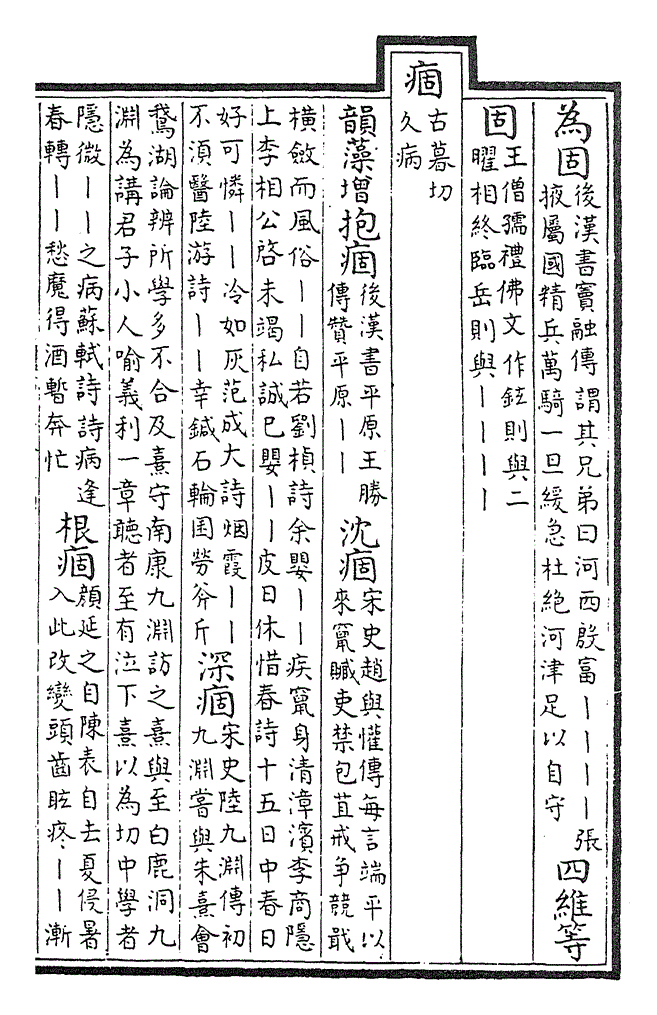 為固
後漢書竇融傳謂其兄弟曰河西殷富丨丨丨丨張
掖屬國精兵萬騎一旦緩急杜絕河津足以自守
四維等
固
王僧孺禮佛文作鉉則與二
曜相終臨岳則與丨丨丨丨
痼
古暮切
久病
韻藻增抱痼
後漢書平原王勝
傳贊平原丨丨
沈痼
宋史趙與懽傳每言端平以
來竄贓吏禁包苴戒争競戢
橫斂而風俗丨丨自若劉楨詩余嬰丨丨疾竄身清漳濱李商隱
上李相公啓未竭私誠已嬰丨丨皮日休惜春詩十五日中春日
好可憐丨丨冷如灰范成大詩烟霞丨丨
不湏醫陸游詩丨丨幸鍼石輪囷勞斧斤
深痼
宋史陸九淵傳初
九淵嘗與朱熹會
鵞湖論辨所學多不合及熹守南康九淵訪之熹與至白鹿洞九
淵為講君子小人喻義利一章聽者至有泣下熹以為切中學者
隱微丨丨之病蘇軾詩詩病逢
春轉丨丨愁魔得酒暫奔忙
根痼
顏延之自陳表自去夏侵暑
入此改變頭齒眩疼丨丨漸